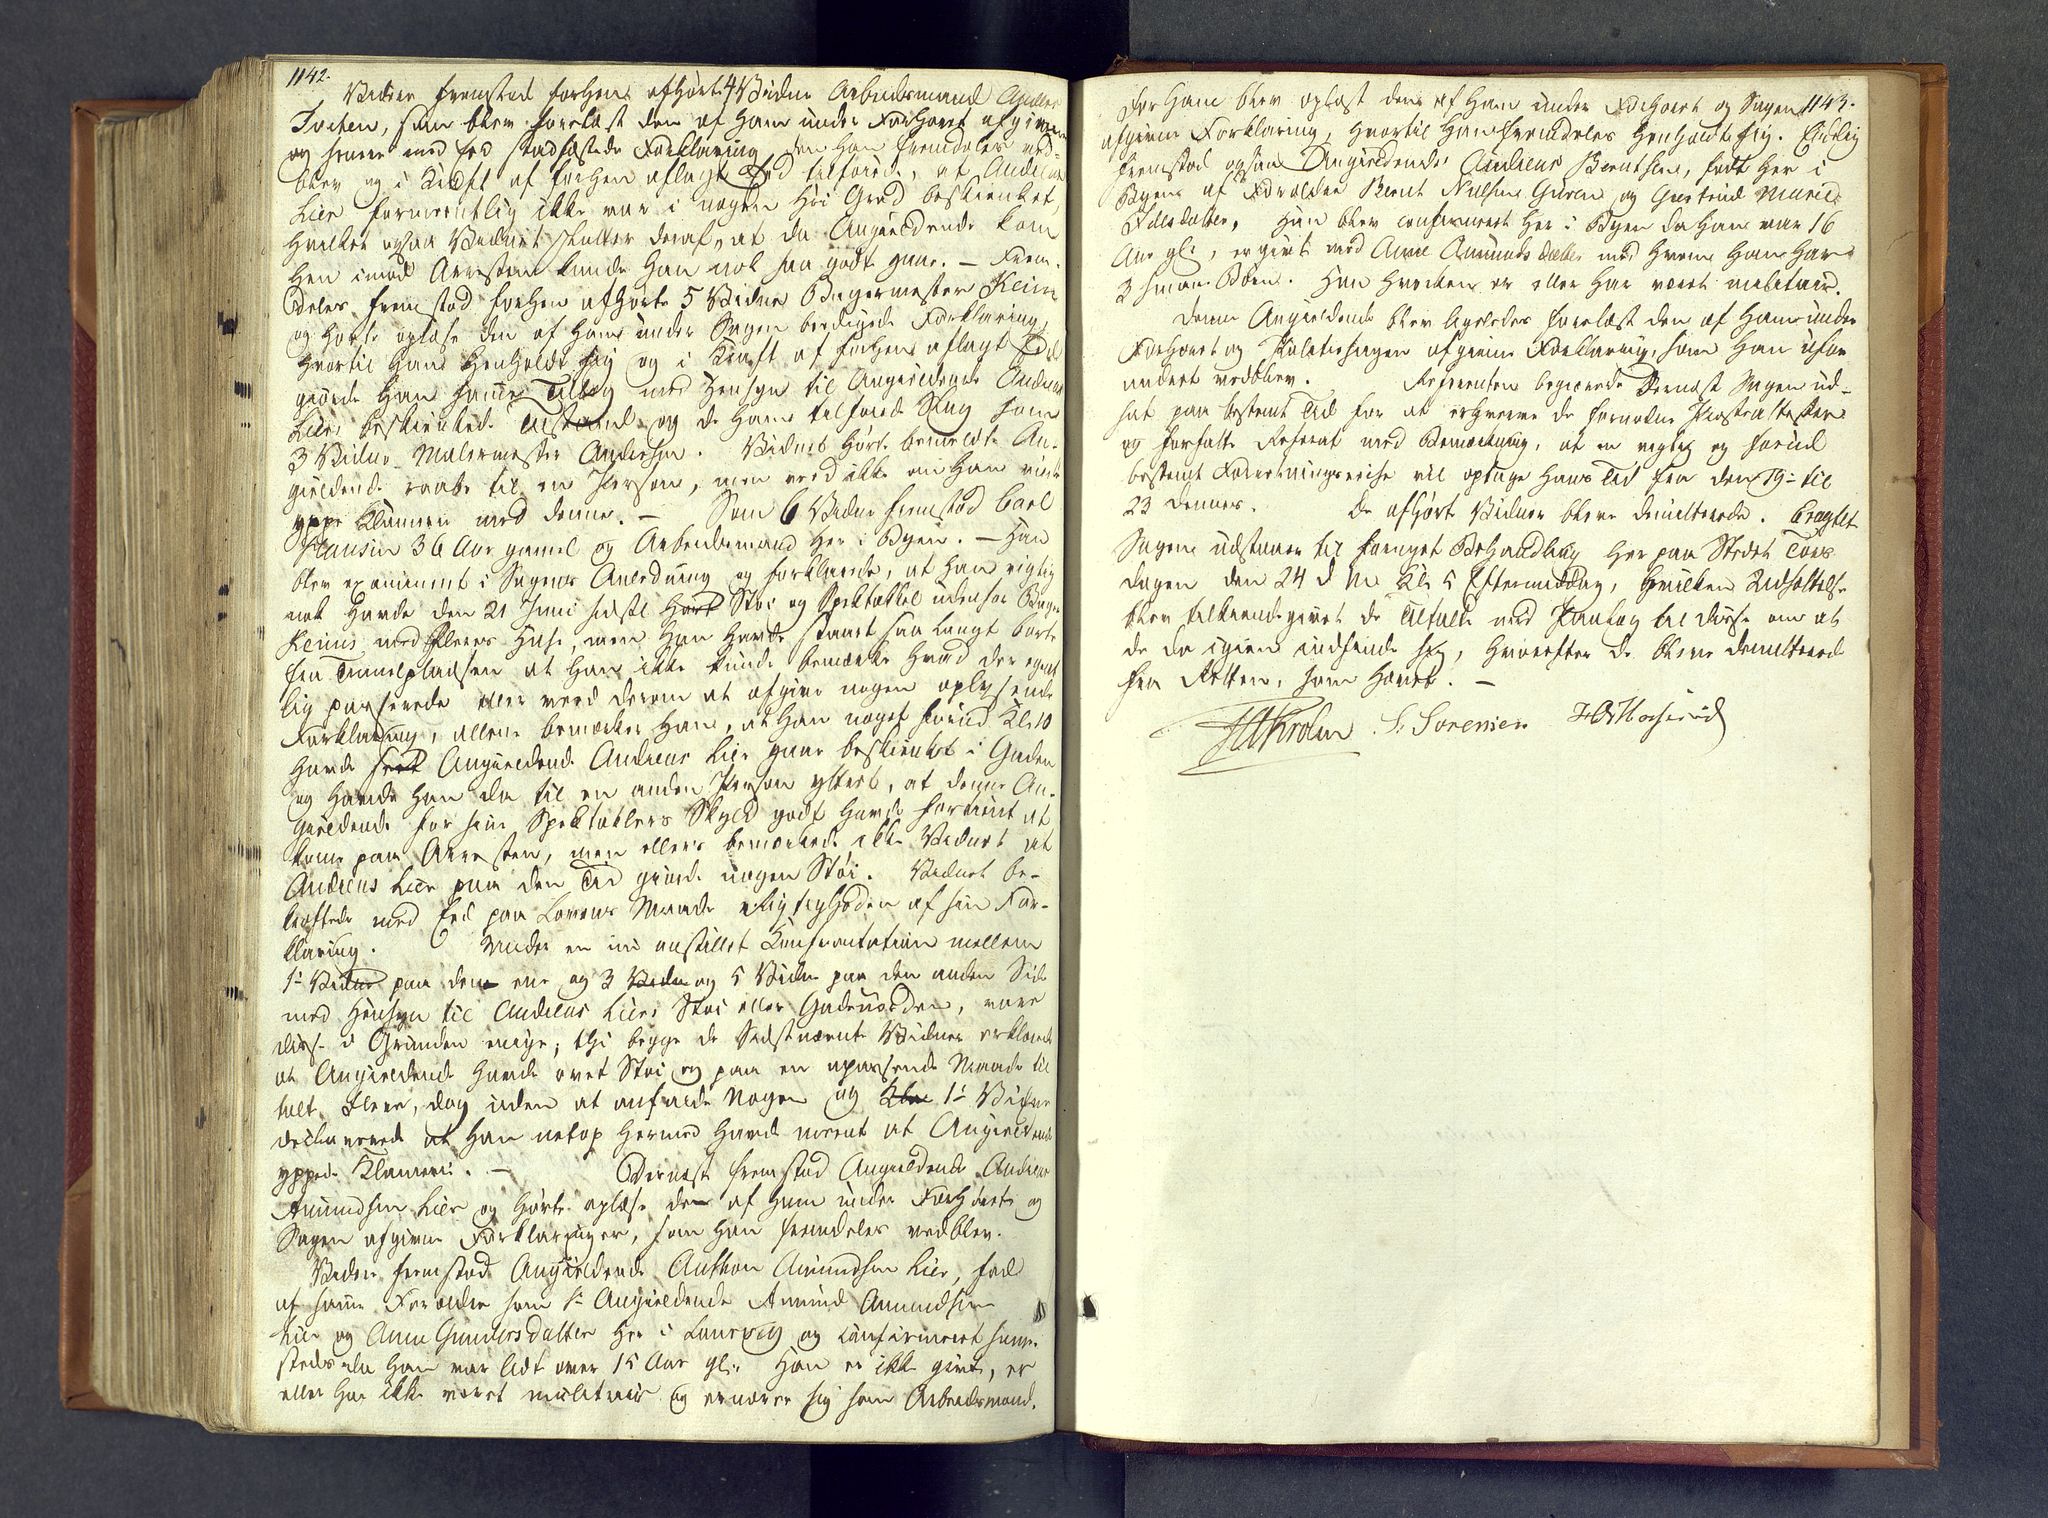 1142.
Videre fremstod forhen afhørte 4 Vidne Arbeidsmand Anders
Tveten, som blev forelæst den af Ham under Forhøret afgivne
og senere med Eed stadfæstede Forklaring, den Han fremdeles ved-
blev og i Kraft af forhen aflagt Eed tilføiede, at Andreas
Lier formeentlig ikke var i nogen Høi Grad beskienket,
hvilket ogsaa Vidnet slutter deraf, at da Angieldende kom
hen imod Arresten kunde Han nok saa godt gaae. — Frem-
deles fremstod forhen afhørte 5 Vidne Bagermester Keim
og hørte oplæse den af Ham under Sagen beedigede Forklaring,
hvortil Han Henholdt sig og i Kraft af forhen aflagt Eed
giorde Han samme Tillæg med Hensyn til Angieldende Andreas
Liers beskienkede Tilstand og de Ham tilføiede Slag som
3 Vidne Malermester Andersen. Vidnet hørte bemeldte An-
gieldende raabe til en Person, men veed ikke om Han vilde
yppe Klammeri med denne. — Som 6 Vidne fremstod Carl
Hansen 36 Aar gammel og Arbeidsmand her i Byen. — Han
blev examineret i Sagens Anledning og forklarede, at Han rigtig
nok havde den 21 Juni sidstl hørt Støi og Spektakkel udenfor Bager
Keims med Fleres Huse, men Han havde staaet saa langt borte
fra Tummelpladsen at Han ikke kunde bemærke hvad der egent
lig passerede eller veed derom at afgive nogen oplysende
Forklaring, allene bemærker Han, at Han noget forend Kl. 10
havde seet Angieldende Andreas Lier gaae beskienket i Gaden
og havde Han da til en anden Person yttret, at denne An-
gieldende for sine Spektaklers Skyld godt havde fortient at
komme paa Arresten, men ellers bemærkede ikke Vidnet at
Andreas Lier paa den Tid giorde nogen Støi. Vidnet be-
kræftede med Eed paa Lovens Maade Rigtigheden af sin For-
klaring. Under en nu anstillet Confrontation mellem
1- Vidne paa den ene og 3 Vidne og 5 Vidne paa den anden Side
med Hensyn til Andreas Liers Støi eller Gadeuorden, vare
disse i Grunden enige; thi begge de Sidstnævnte Vidner erklærede
at Angieldende havde øvet Støi og paa en upassende Maade til
talt Flere, dog uden at anfalde Nogen og 1- Vidne
declarerede at Han netop hermed havde meent at Angieldende
yppede Klammeri. — Dernæst fremstod Angieldende Andreas
Amundsen Lier og hørte oplæse den af ham under Forhøret og
Sagen afgivne Forklaringer, som Han fremdeles vedblev.
Videre fremstod Angieldende Anthon Amundsen Lier, fød
af samme Forældre som 1- Angieldende Amund Amundsen
Lier og Anne Gundersdatter her i Laurvig og Confirmeret samme-
steds da Han var lidt over 15 Aar gl. Han er ikke givt, er
eller har ikke været militair og ernærer sig som Arbeidsmand.
1143.
For Ham blev oplæst den af Ham under Forhøret og Sagen
afgivne Forklaring, hvortil Han fremdeles Henholdt sig. Endelig
fremstod ogsaa Angieldende Andreas Berntsen, født her i
Byen af Forældre Bernt Nielsen Guren og Giertrud Marie
Eilesdatter, Han blev confirmeret her i Byen da Han var 16
Aar gl., er givt med Anne Amundsdatter med hvem Han har
3 smaa Børn. Han hverken er eller har været militair.
Denne Angieldende blev ligeledes forelæst den af Ham under
Forhøret og Politiesagen afgivne Forklaring, som Han ufor
andret vedblev. Referenten begierede dernæst Sagen ud-
sat paa bestemt Tid for at erhverve de fornødne Præsteattester
og forfatte Referat med Bemærkning, at en vigtig og forud
bestemt Forretningsreise vil optage Hans Tid fra den 19- til
23 dennes. De afhørte Vidner bleve demitterede. Eragtet
Sagen udstaaer til fornyet Behandling her paa Stedet Tors-
dagen den 24 d M Kl. 5 Eftermiddag, hvilken Udsættelse
blev tilkiendegivet de Tiltalte med Paalæg til disse om at
de da igien indfinde sig, hvorefter de bleve demitterede
fra Retten, som hævet. —
J A Krohn S. Sørensen